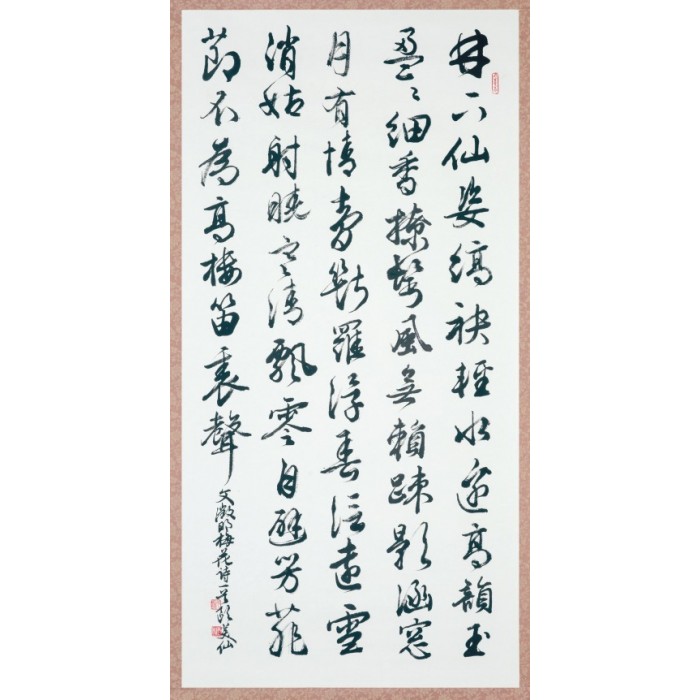 林下仙姿縞袂輕水邊高韻玉
盈々細香撩鬢風無賴踈影涵窓
月有情夢斷羅浮春信遠雪
消姑射曉寒清飄零自避芳菲
節不為高樓笛裏聲
文徵明梅花诗一首 美仙